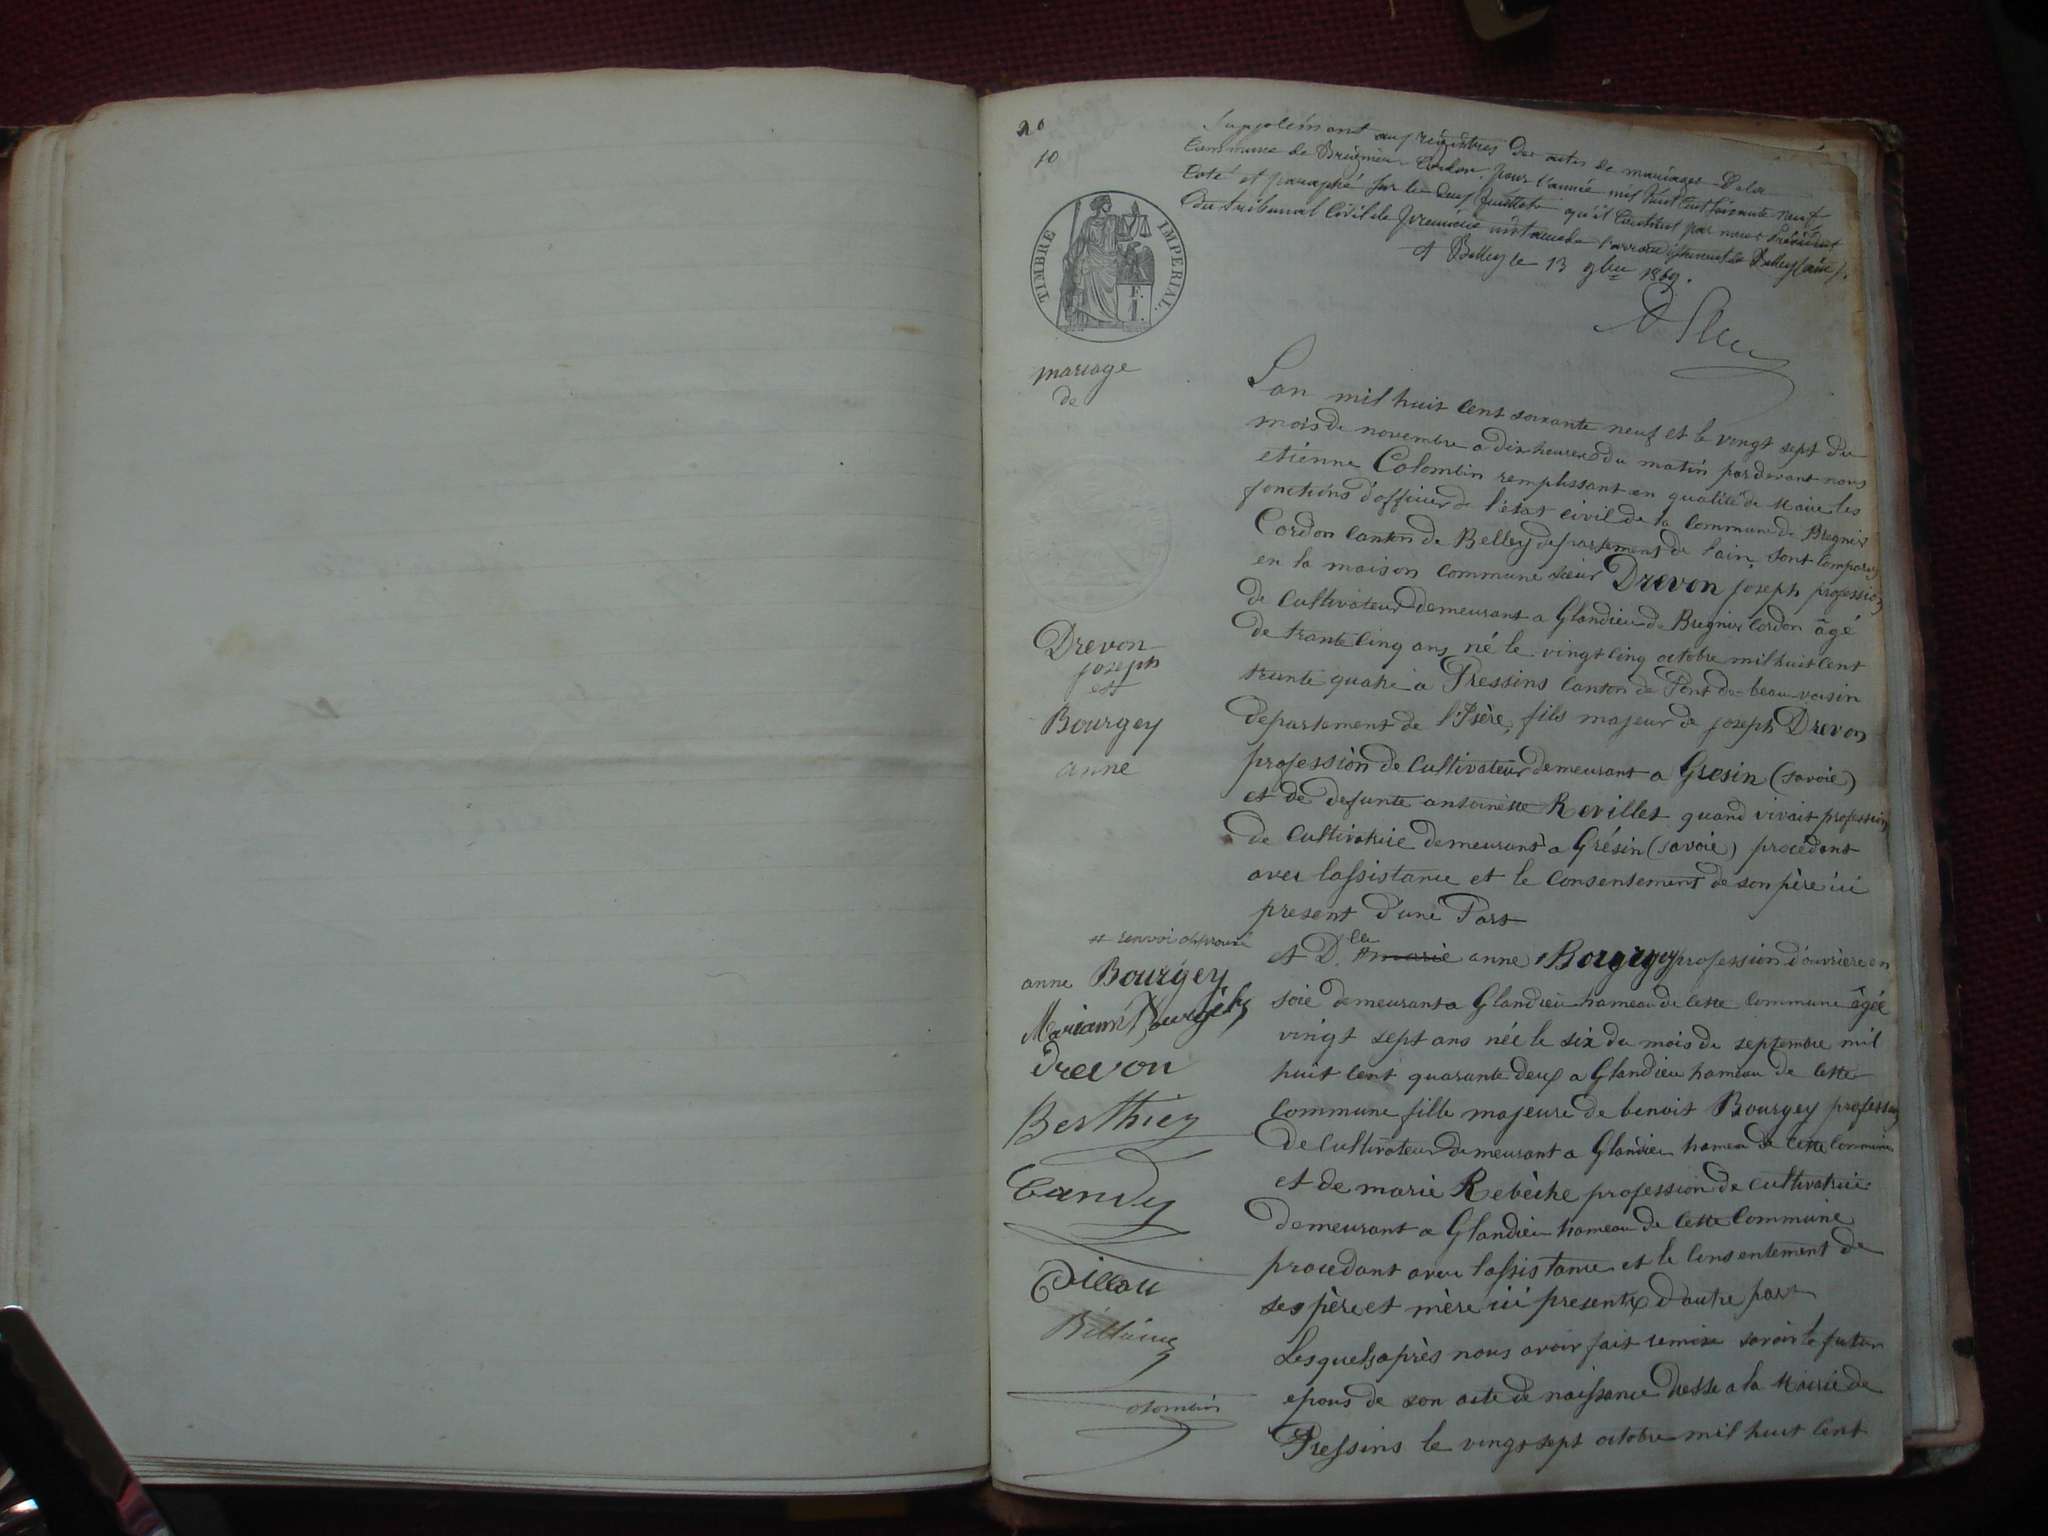 20
10
Supplément aux registres des actes de mariages de la
Commune de Brégnier-Cordon, pour l'année mil huit cent soixante neuf
Coté et paraphé sur les deux feuillets qu'il contient par nous Président
du tribunal Civil de première instance de l'arrondissement de Belley (ain).
A Belley le 13 9bre 1869.
TIMBRE IMPERIAL.
F.
1.
mariage
de
Drevon
joseph
et
Bourgey
anne
L'an mil huit cent soixante neuf et le vingt sept du
mois de novembre a dix heures du matin pardevant nous
etiénne Colombin remplissant en qualité de Maire les
fonctions d'officier de l'état civil de la Commune de Bregnier
Cordon canton de Belley departement de l'ain sont comparus
en la maison commune sieur Drevon joseph profession
de cultivateur demeurant a Glandieu de Bregnier Cordon âgé
de trante cinq ans né le vingt cinq octobre mil huit cent
trente quatre a Pressins canton de Pont de-beauvoisin
departement de l'Isère, fils majeur de joseph Drevon
profession de cultivateur demeurant a Gresin (savoie)
et de defunte antoinette Revillet quand vivait profession
de cultivatrice demeurant a Grésin (savoie) procedant
avec lassistance et le consentement de son père ici
present d'une Part
et Dlle marie anne Bourgey profession d'ouvrière en
soie demeurant a Glandieu hameau de cette commune âgée
vingt sept ans née le six du mois de septembre mil
huit cent quarante deux a Glandieu hameau de cette
commune fille majeure de benoit Bourgey profession
de cultivateur demeurant a Glandieu hameau de cette commune
et de marie Rebèche profession de cultivatrice
demeurant a Glandieu hameau de cette commune
procedant avec lassistance et le consentement de
ses père et mère ici presents d'autre part
Lesquels après nous avoir fait remise savoir le futur
epoux de son acte de naissance dressé a la Mairie de
Pressins le vingt sept octobre mil huit cent
# renvoi approuvé
anne Bourgey
Drevon
Berthier
Candy
Billiémaz
Colombin